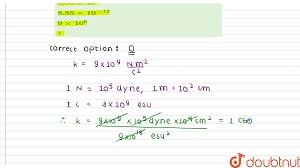 8.85 × 10⁻¹²
9 × 10⁹
1
Correct option: D
k = 9×10⁹ Nm²/C²
1 N = 10⁵ dyne, 1m = 10² cm
1 C = 3×10⁹ esu
∴ k = 9×10⁹ × 10⁵ dyne × 10⁴ cm² / 9×10¹⁸ esu² = 1
doubtnut